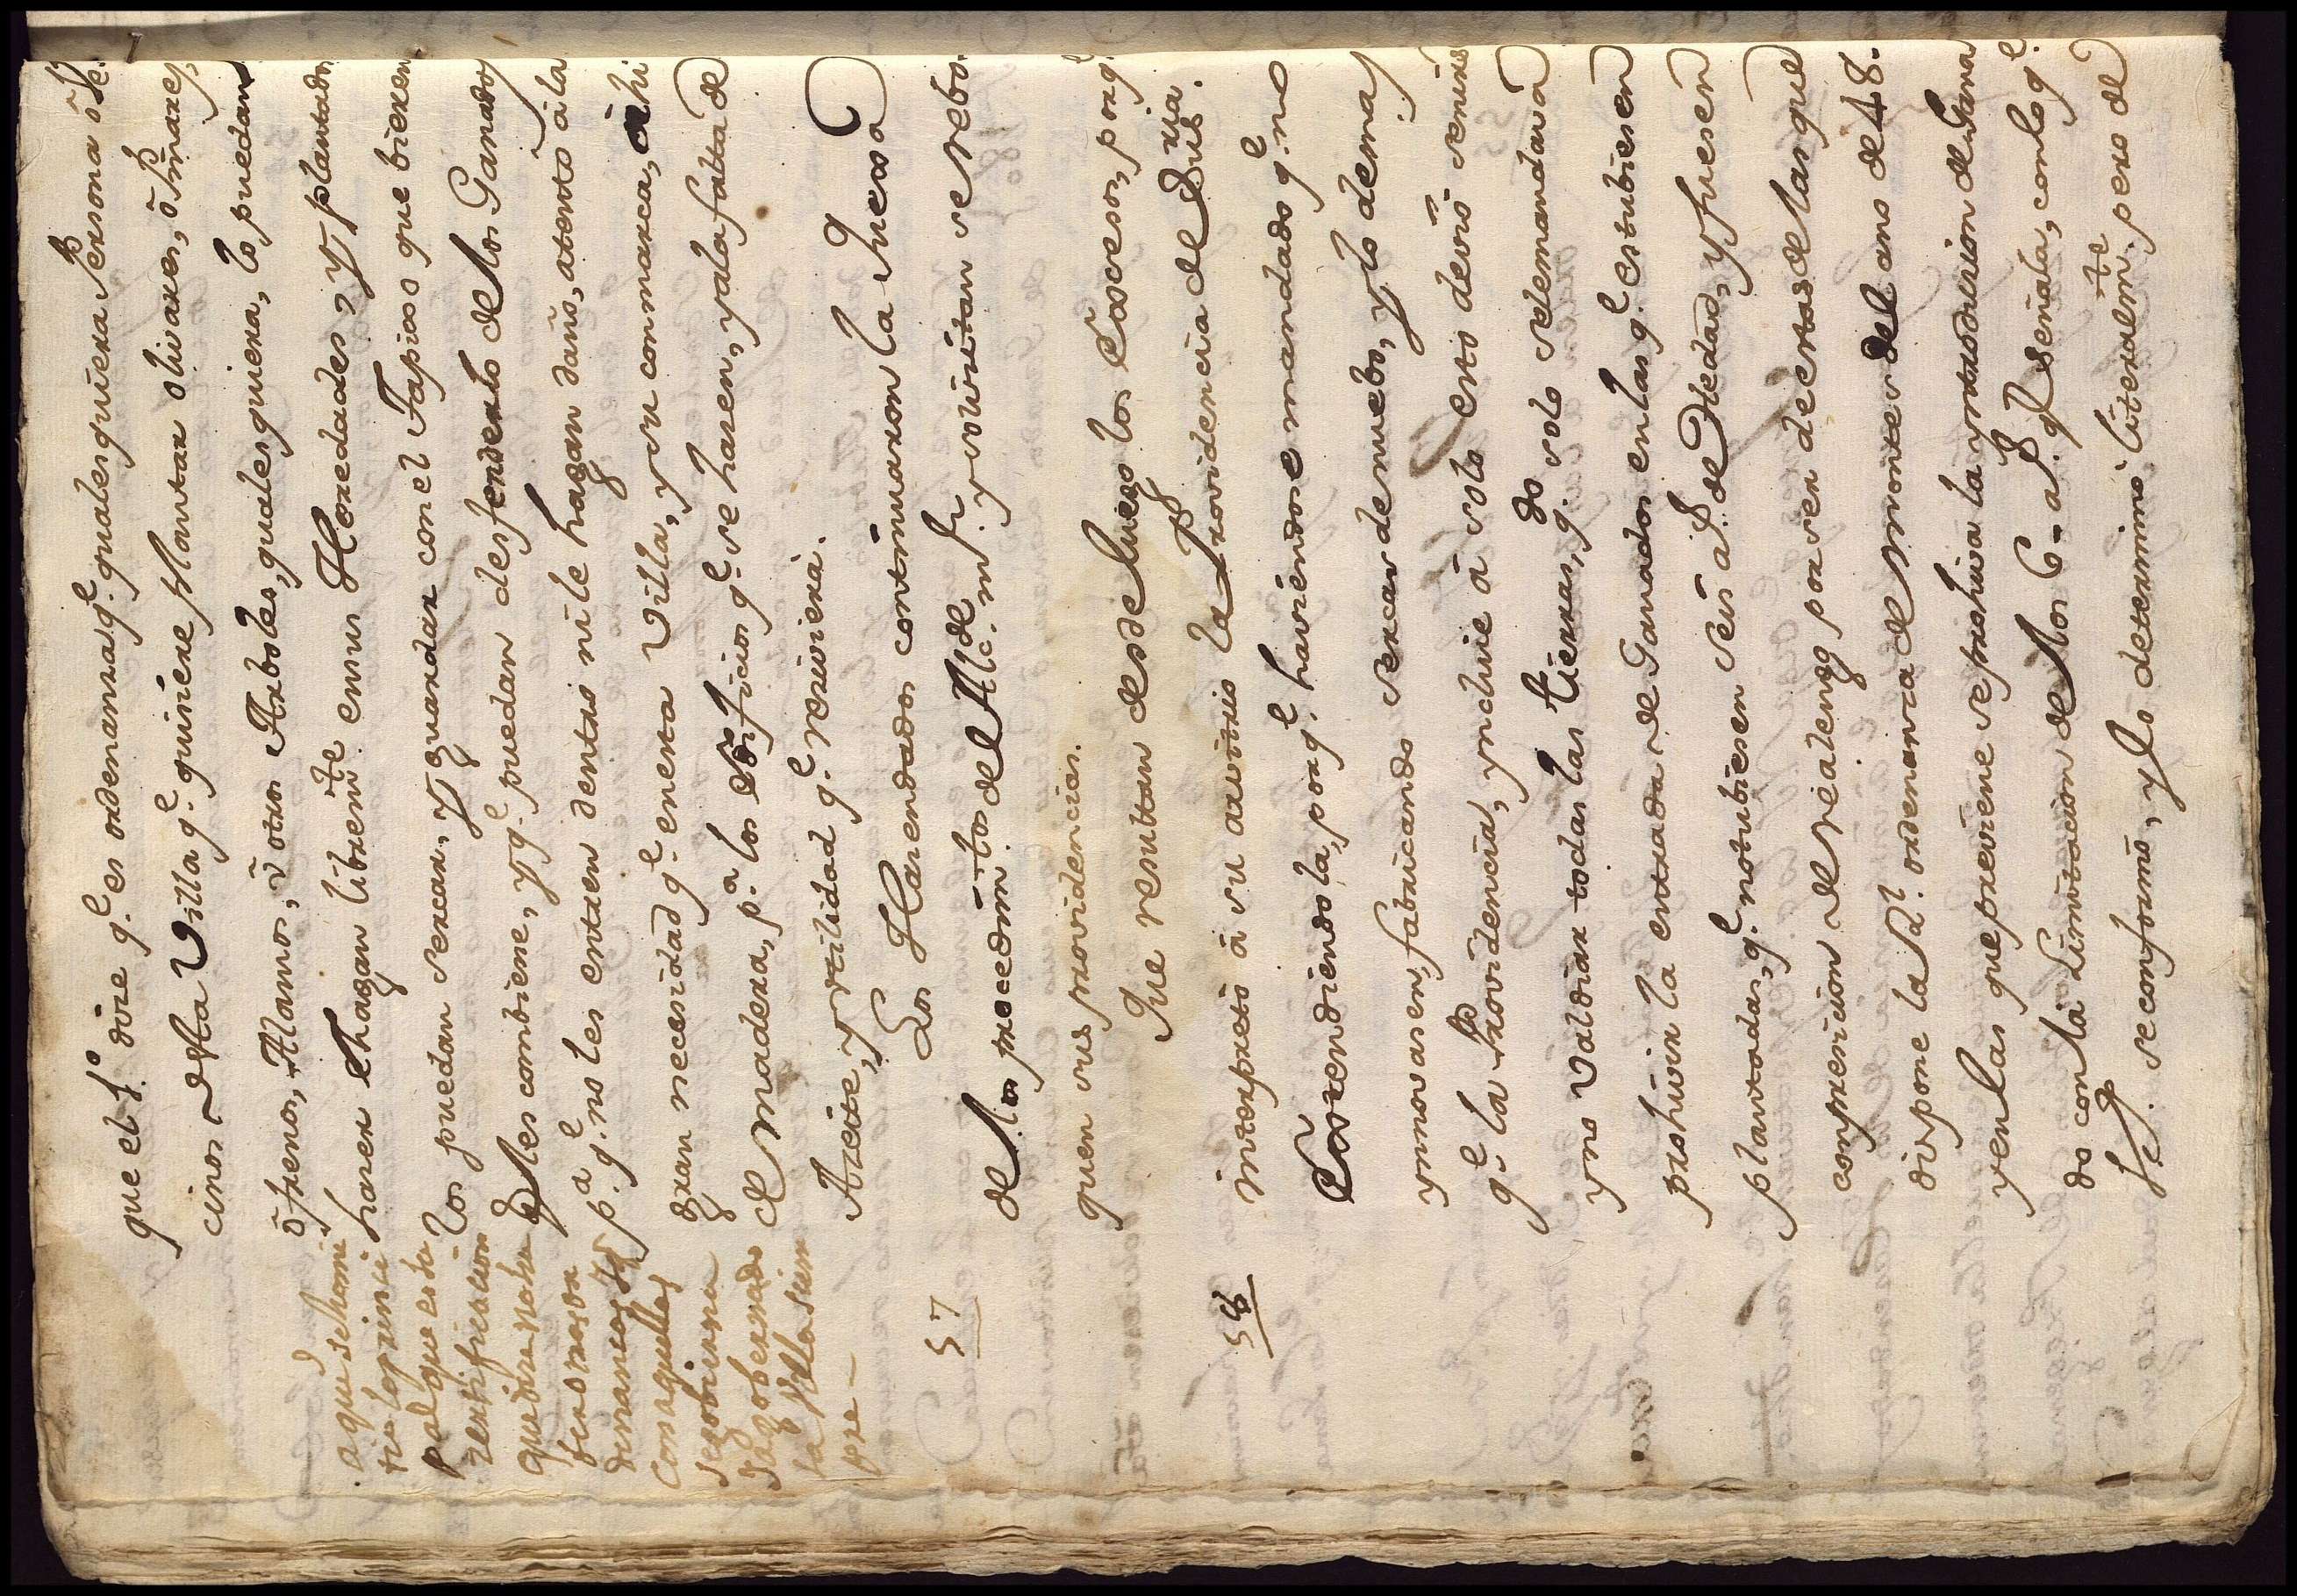 que el 1.º dice q.e es ordenanza q.e qualesquiera Persona ô Ve
cinos desta Villa q.e quisiere Plantar olivares, ô Pinares,
ô frenos, Alamos, û otros Arboles, qualesquiera, lo puedan
hacer e hagan librem.te en sus Heredades, y plantados
los puedan sercar, y guardar con el Tapiado que bieren
q.e les combiene, y q.e puedan desfenderlo de los Ganados
p.a q.e no les entren dentro ni le hagan daño, atento â la
gran necesidad q.e en esta Villa, y su commarca, âhi
de madera, p.a los Edificios q.e se hacen, y a la falta de
Aceite, y utilidad q.e recivierà.
Los Hacendados continuaron la Quexa
de los procedim.tos del Alc.de m.r y solicitan se rebo
quen sus providencias.
Que resultan desde luego los Excesos, porq.e
interpretó â su advitrio la Providencia de Dub.ria
Extendiendola, porq.e haviendose mandado q.e no
ynnovasen, fabricando sercas de nuebo, y lo demas
q.e la Providencia, yncluie â solo esto devió señirse
y no valdiar todas las tierras, q.do solo se demandava
prohivir la entrada de Ganados en las q.e estubiesen
plantadas, q.e no tubiesen seis a.s de Hedad, y fuesen
conprension de realengo por ser de estas de las que
dispone la R.l ordenanza de Montes del ano de 48.
y en las que previene se prohiva la yntroducion de Gana
do con la Limitacion de los 6. a.s q.e señala, con lo q.e
se conformó, y lo determinó literalm.te pero de
57
58
aqui se homi
tio lo princi
pal que es la
zertificacion
que dize no ha
con aquellas
se gobierna
gobernado
la Villa siem
pre —